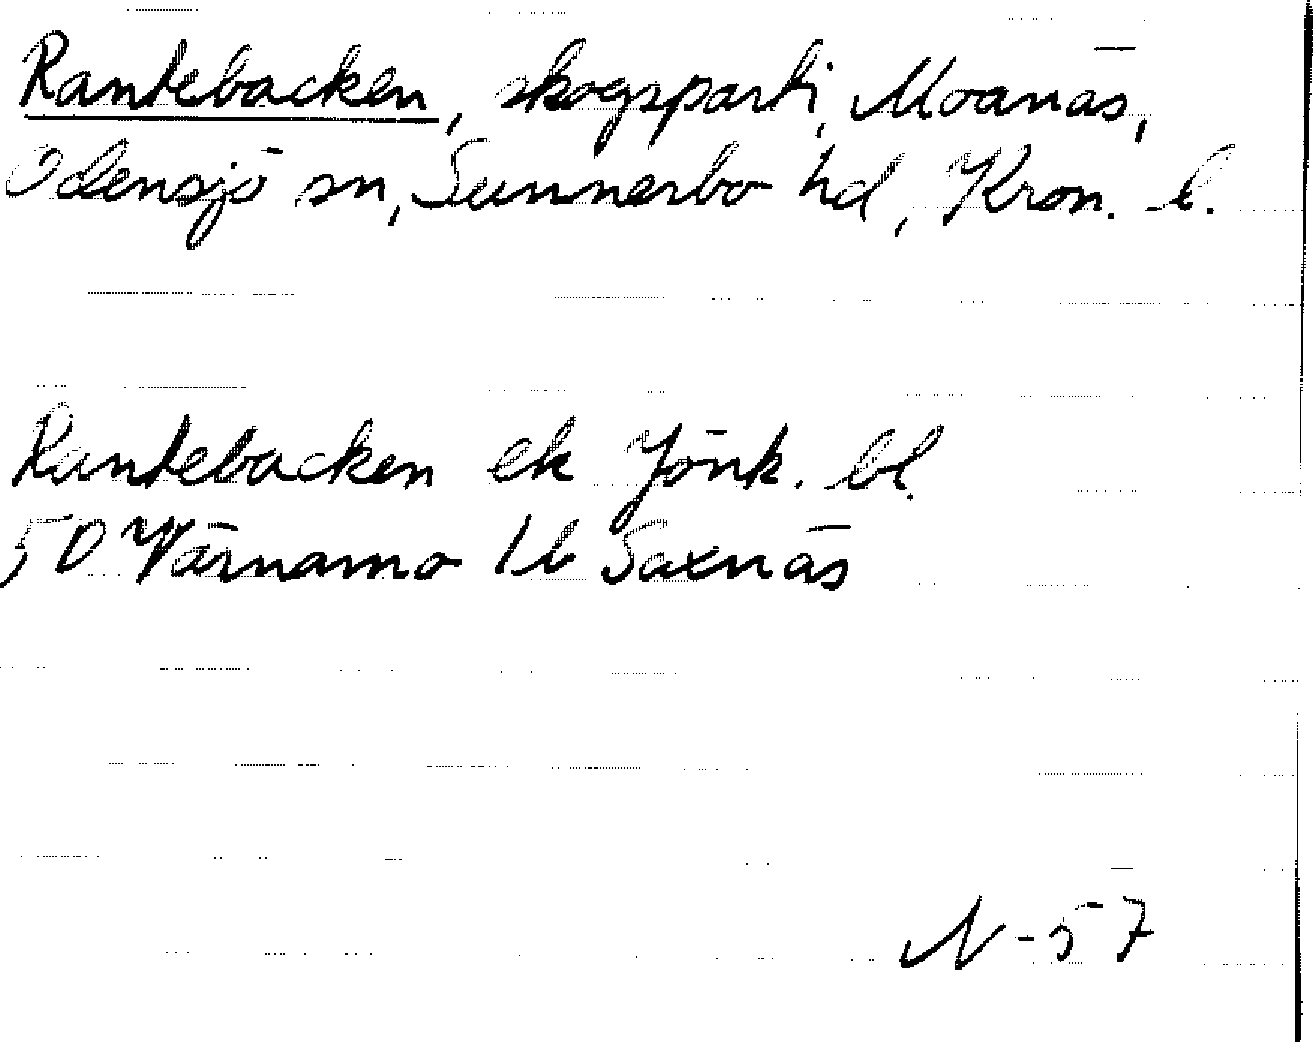 Rantebacken, skogsparti, Moanäs,
Odensjö sn, Sunnerbo hd, Kron. l.
Rantebacken ek Jönk. bl.
5D Värnamo 1b Saxnäs
N-57